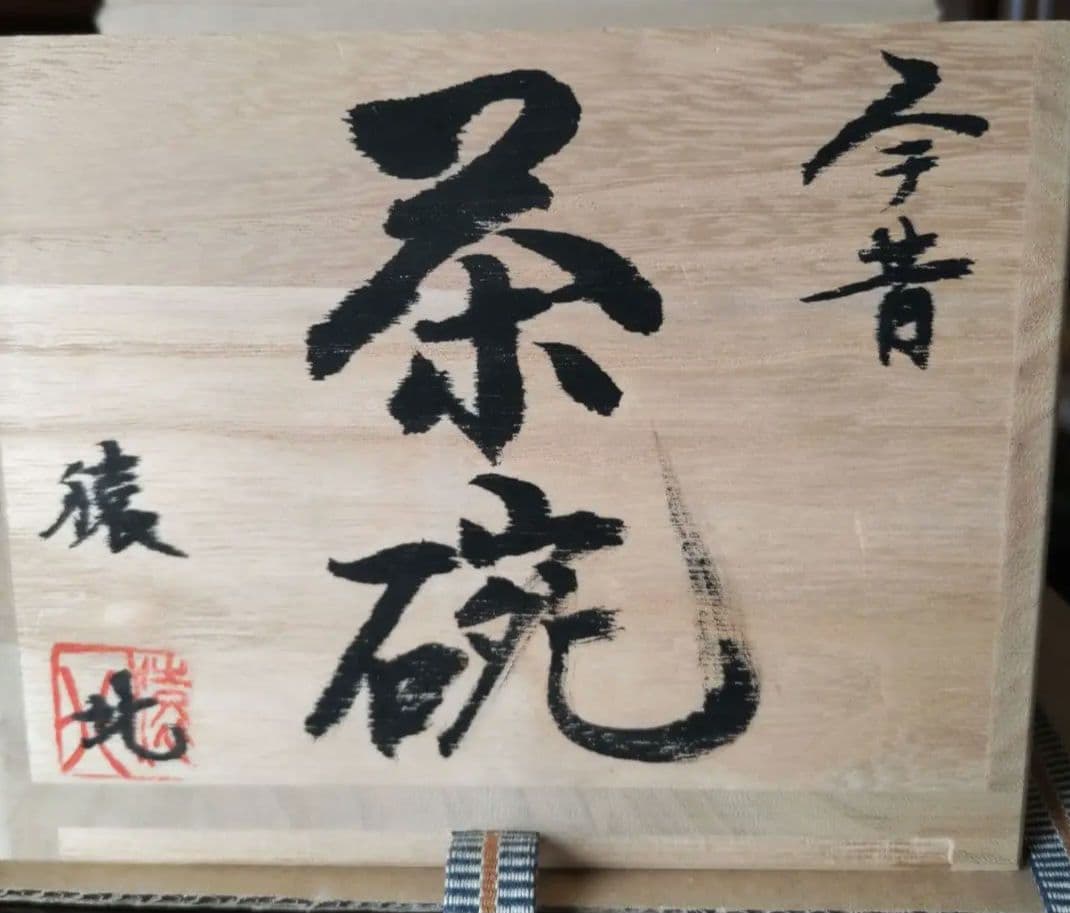 今昔
茶碗
猿北